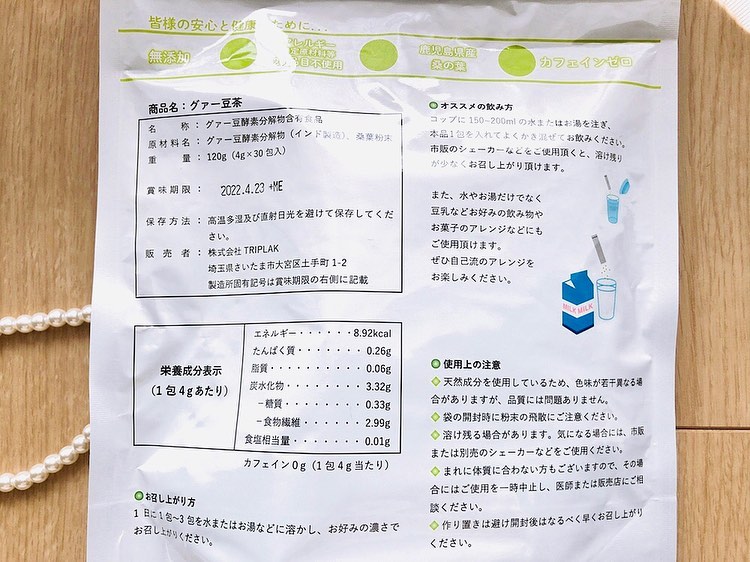 皆様の安心と健康のために...
無添加
アレルギー
特定原材料等
品目不使用
鹿児島県産
桑の葉
カフェインゼロ
商品名：グァー豆茶
名称：グァー豆酵素分解物含有食品
原材料名：グァー豆酵素分解物（インド製造）、桑葉粉末
重量：120g（4g×30包入）
賞味期限：2022.4.23 +ME
保存方法：高温多湿及び直射日光を避けて保存してくだ
さい。
販売者：株式会社TRIPLAK
埼玉県さいたま市大宮区土手町1-2
製造所固有記号は賞味期限の右側に記載
栄養成分表示
（1包4gあたり）
エネルギー・・・・・・8.92kcal
たんぱく質・・・・・・・0.26g
脂質・・・・・・・・・・0.06g
炭水化物・・・・・・・・3.32g
−糖質・・・・・・・・・0.33g
−食物繊維・・・・・・・2.99g
食塩相当量・・・・・・・0.01g
カフェイン0g（1包4g当たり）
お召し上がり方
1日に1包〜3包を水またはお湯などに溶かし、お好みの濃さで
お召し上がりください。
オススメの飲み方
コップに150~200mlの水またはお湯を注ぎ、
本品1包を入れてよくかき混ぜてお飲みください。
市販のシェーカーなどをご使用頂くと、溶け残り
が少なくお召し上がり頂けます。
また、水やお湯だけでなく
豆乳などお好みの飲み物や
お菓子のアレンジなどにも
ご使用頂けます。
ぜひ自己流のアレンジを
お楽しみください。
MILK MILK
使用上の注意
天然成分を使用しているため、色味が若干異なる場
合がありますが、品質には問題ありません。
袋の開封時に粉末の飛散にご注意ください。
溶け残る場合があります。気になる場合には、市販
または別売のシェーカーなどをご使用ください。
まれに体質に合わない方もございますので、その場
合にはご使用を一時中止し、医師または販売店にご相
談ください。
作り置きは避け開封後はなるべく早くお召し上がり
ください。